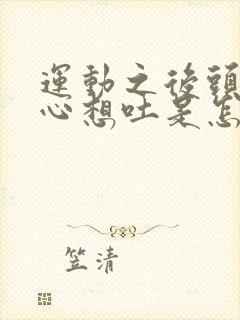 運動之後頭
心想吐是怎
笠清